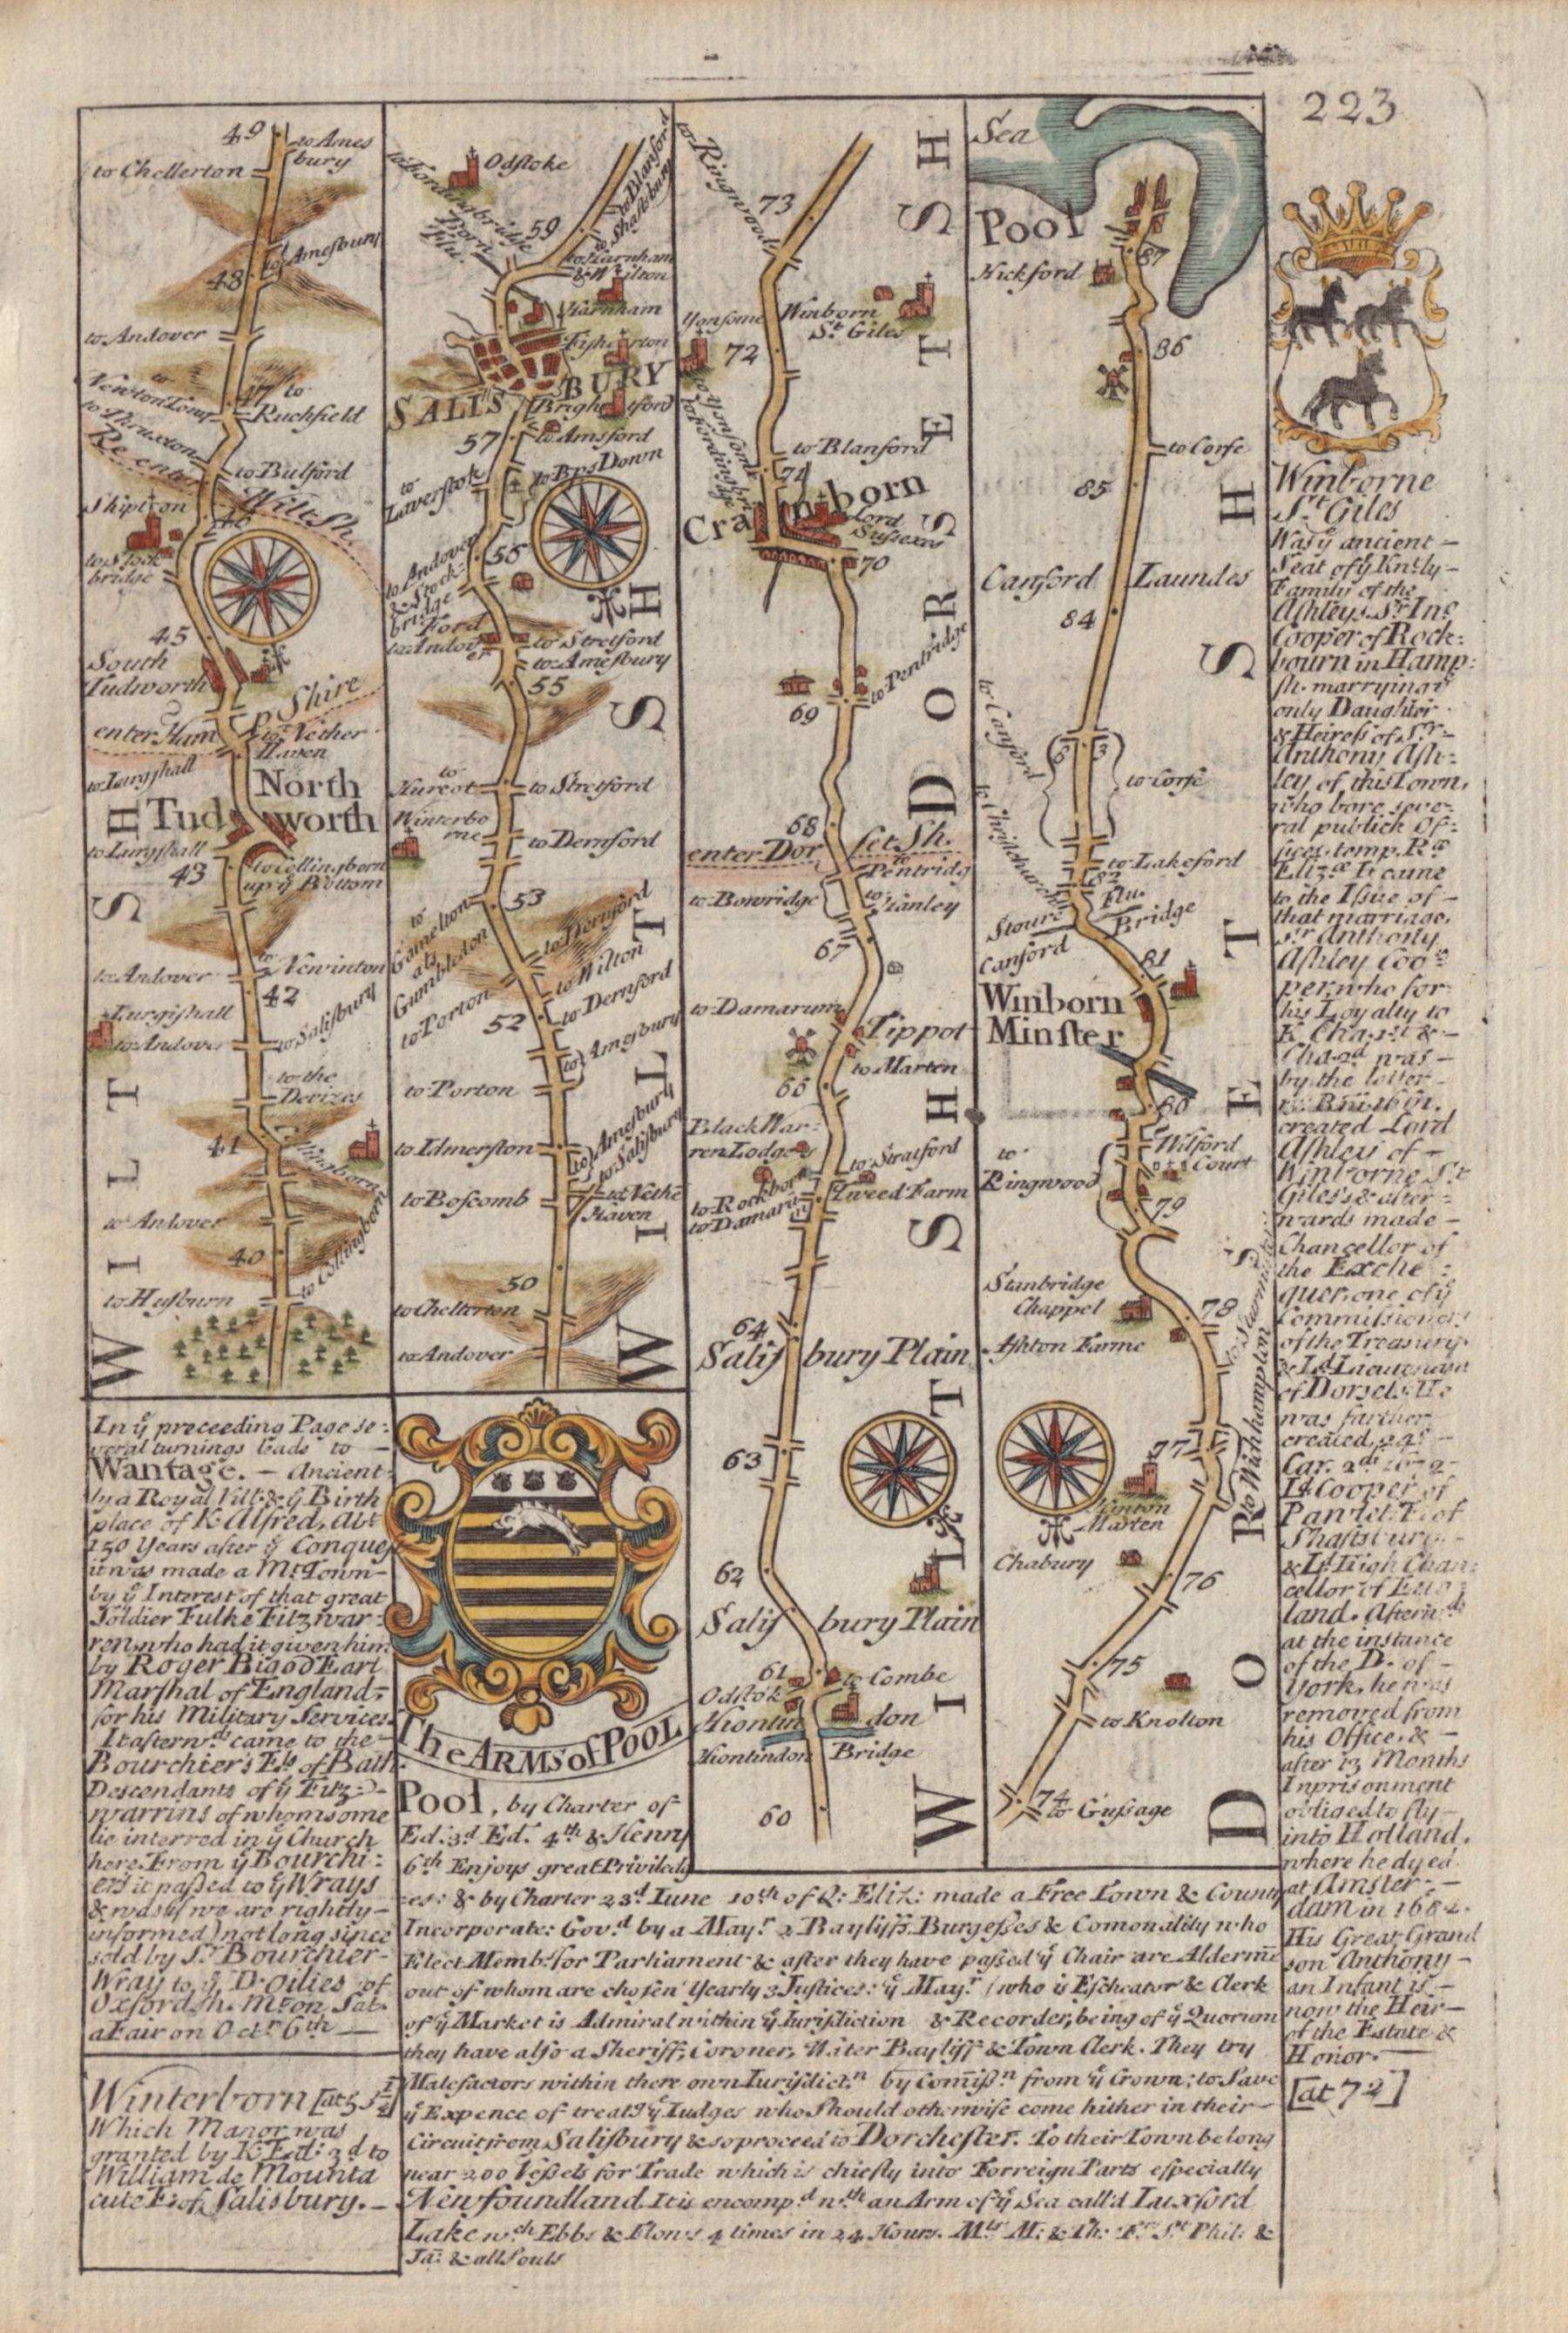 223
49
to Ames
bury
to Chellerton
to Amesbury
48
to Andover
to
Newton Tony
47
to
Ruchfield
to Thruxton
to Bulford
Re enter Wilt Sh.
Shipton
46
to Stock
bridge
45
South
Tudworth
enter Ham
P Shire
to Nether
Haven
to Lurgshall
North
Tud worth
to Lurgshall
43
to Collingborn
up ye Bottom
to Andover
to
Newinton
42
Lurgishall
to Andover
to Salisbury
to the
Devizes
41
to Andover
40
to Collingborn
to Husburn
WILTSH
In ye preceeding Page se:
veral turnings leads to
Wantage. – Ancient:
ly a Royal Vill: & ye Birth
place of K. Alfred, Abt
150 Years after ye Conquest
it was made a Mt. Town
by ye Interest of that great
Soldier Fulke Fitzwar:
ren, who had it given him
by Roger Bigod Earl
Marshal of England,
for his Military Services.
It aftern.ds came to the
Bourchier's Els. of Bath
Descendants of ye Fitz
warrins of whom some
lie interred in ye Church
here. From ye Bourchi:
ers it passed to ye Wrays
& was (if we are rightly
informed) not long since
sold by Sr. Bourchier
Wray to ye D'oilies of
Oxfordsh. Mt. on Sat.
a Fair on Octr. 6th
Winterborn [at 53½]
Which Manor was
granted by K. Ed: 3d to
William de Mounta
cute E: of Salisbury.
to Fordingbridge
Odstoke
to Blanford
to Shaftsbury
59
to Harnham
& Wilton
Harnham
Fisherton
SALISBURY
57
to Amsford
to Bps Down
to
Laverstok
to Andover
& Stock:
bridge
56
Ford
to Andov
er
to Stretford
to Amesbury
55
to
Hurcot
to Stretford
Winterbo
rne
to Dernford
53
to
Gamelton
als
Gumbledon
to Wilton
to Porton
52
to Dernford
to Amesbury
to Porton
to Idmerston
to Amesbury
to Salisbury
to Boscomb
to Nethe
Haven
50
to Chelterton
to Andover
WILTSH
The ARMS of POOL
Pool, by Charter of
Ed: 3d Ed. 4th & Henry
6th Enjoys great Priviledg
es: & by Charter 23d Iune 10th of Q: Eliz: made a Free Town & County
Incorporate: Gov.d by a Mayr. 2 Baylyffs. Burgesses & Comonality who
Elect Memb.s for Parliament & after they have passed ye Chair are Alderme
out of whom are chosen Yearly 3 Justices: ye Mayr. (who is Escheator & Clerk
of ye Market is Admiral within ye Iurisdiction & Recorder, being of ye Quorum
they have also a Sheriff, Coroner, Water Baylyff & Town Clerk. They try
Malefactors within there own Iurisdict.n by Comiss.n from ye Crown; to Save
ye Expence of treatg ye Iudges who Should otherwise come hither in their
Circuit from Salisbury & so proceed to Dorchester. To their Town belong
near 200 Vessels for Trade which is chiefly into Forreign Parts especially
Newfoundland. It is encomp.d wth an Arm of ye Sea call'd Luxford
Lake wch Ebbs & Flows 4 times in 24 Hours. Mts M: & Th: Frs St Phil: &
Ja: & all Souls
to Ringwood
73
Winborn
St. Giles
72
to Blanford
71
Cranborn
Lord
Sussexes
70
to Pentridge
69
68
enter Dor set Sh.
to
Pentridg
to Bowridge
to
Hanley
67
to Damarum
Tippot
to Marten
65
Black War:
ren Lodge
to Stratford
to Rockborn
Tweed Farm
to Damarū
64
Salis bury Plain
63
62
Salis bury Plain
61
to Combe
Odstok
Hontin don
Hontindon Bridge
60
WILTSH
DORSETSH
Sea
Pool
87
Hickford
86
to Corfe
85
Canford Laundes
84
to Canford
83
to Corfe
to Christchurch
to Lakeford
82
Stoure Flu.
Bridge
Canford
81
Winborn
Minster
80
Wilford
Court
to
Ringwood
79
Stanbridge
Chappel
78
Ashton Farme
to Wichhampton
77
Hinton
Marten
Chabury
76
75
to Knolton
74
to Gussage
DORSETSH
Winborne
St. Giles
Was ye ancient
Seat of ye Kntly
Family of the
Ashleys. Sr. Ino.
Cooper of Rock:
bourn in Hamp:
sh. marrying ye
only Daughter
& Heiress of Sr.
Anthony Ash:
ley of this Town,
who bore seve:
ral publick Of:
fices, temp. Ræ
Elizæ It came
to the Issue of
that marriage,
Sr. Anthony
Ashley Coo
per, who for
his Loyalty to
K Cha: 1st &
Cha: 2d was
by the latter
created Lord
Ashley of
Winborne St
Giles's & after:
wards made
Chancellor of
the Exche
quer, one of ye
Commissioners
of the Treasury
& Ld. Lieutenant
of Dorset. He
was farther
created, 24o
Car. 2di 1672
Ld Cooper of
Pawlet, E. of
Shaftsbury
& Ld. High Chan:
cellor of Eng
land. Aftern.ds
at the instance
of the D. of
York, he was
removed from
his Office, &
after 13 Months
Inprisonment
obliged to fly
into Holland,
where he dyed
at Amster:
dam in 1682.
His Great Grand
son Anthony
an Infant is
now the Heir
of the Estate &
Honor.
[at 72]